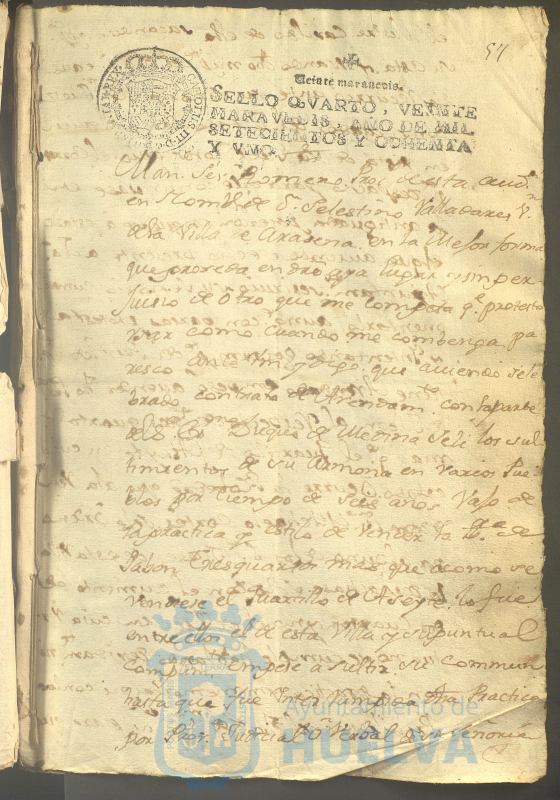 57
Veinte maravedis.
SELLO QVARTO, VEINTE
MARAVEDIS, AÑO DE MIL
SETECIENTOS Y OCHENTA
Y VNO.
CAROLUS III
Man. Romeno de esta
en Nomb. de Dn. Selestino Valladares
de la Villa de Arasena en la Mejor forma
que proseda en dro. y sin per
juisio de Otro que me Competa q. protesto
Vzar como y Cuando me Combenga pa
resco ante Vm. y digo que aviendo sele
brado contrato de Arrendam.to con la parte
del Duque de Medina Seli los sur
timientos de su Almona en Varios Pue
blos por tiempo de Seis años Vajo de
la practica y estilo de Vender la de
Jabon tres quartos mas que a como se
Vendiese el quartillo de Aseyte, lo fue
entre ellos el de esta Villa y su puntual
Cumplim.to empese a surtir su Commun
hasta que fue Practica
por Verbal de Vuestra señoria
Ayuntamiento de
HUELVA